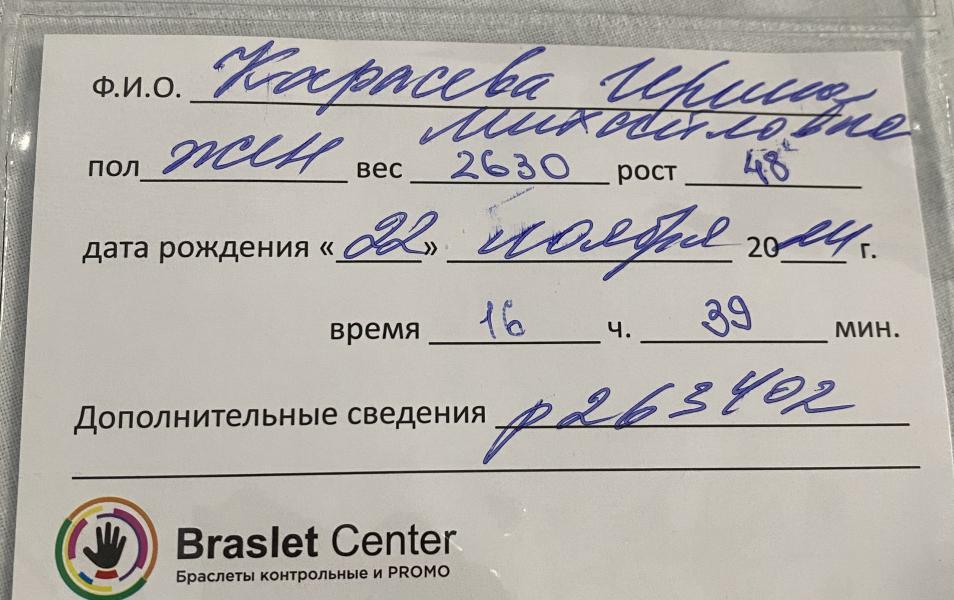 Ф.И.О. Карасева Ирина
Михайловна
пол жен вес 2630 рост 48
дата рождения «22» ноября 2024 г.
время 16 ч. 39 мин.
Дополнительные сведения р263402
Braslet Center
Браслеты контрольные и PROMO